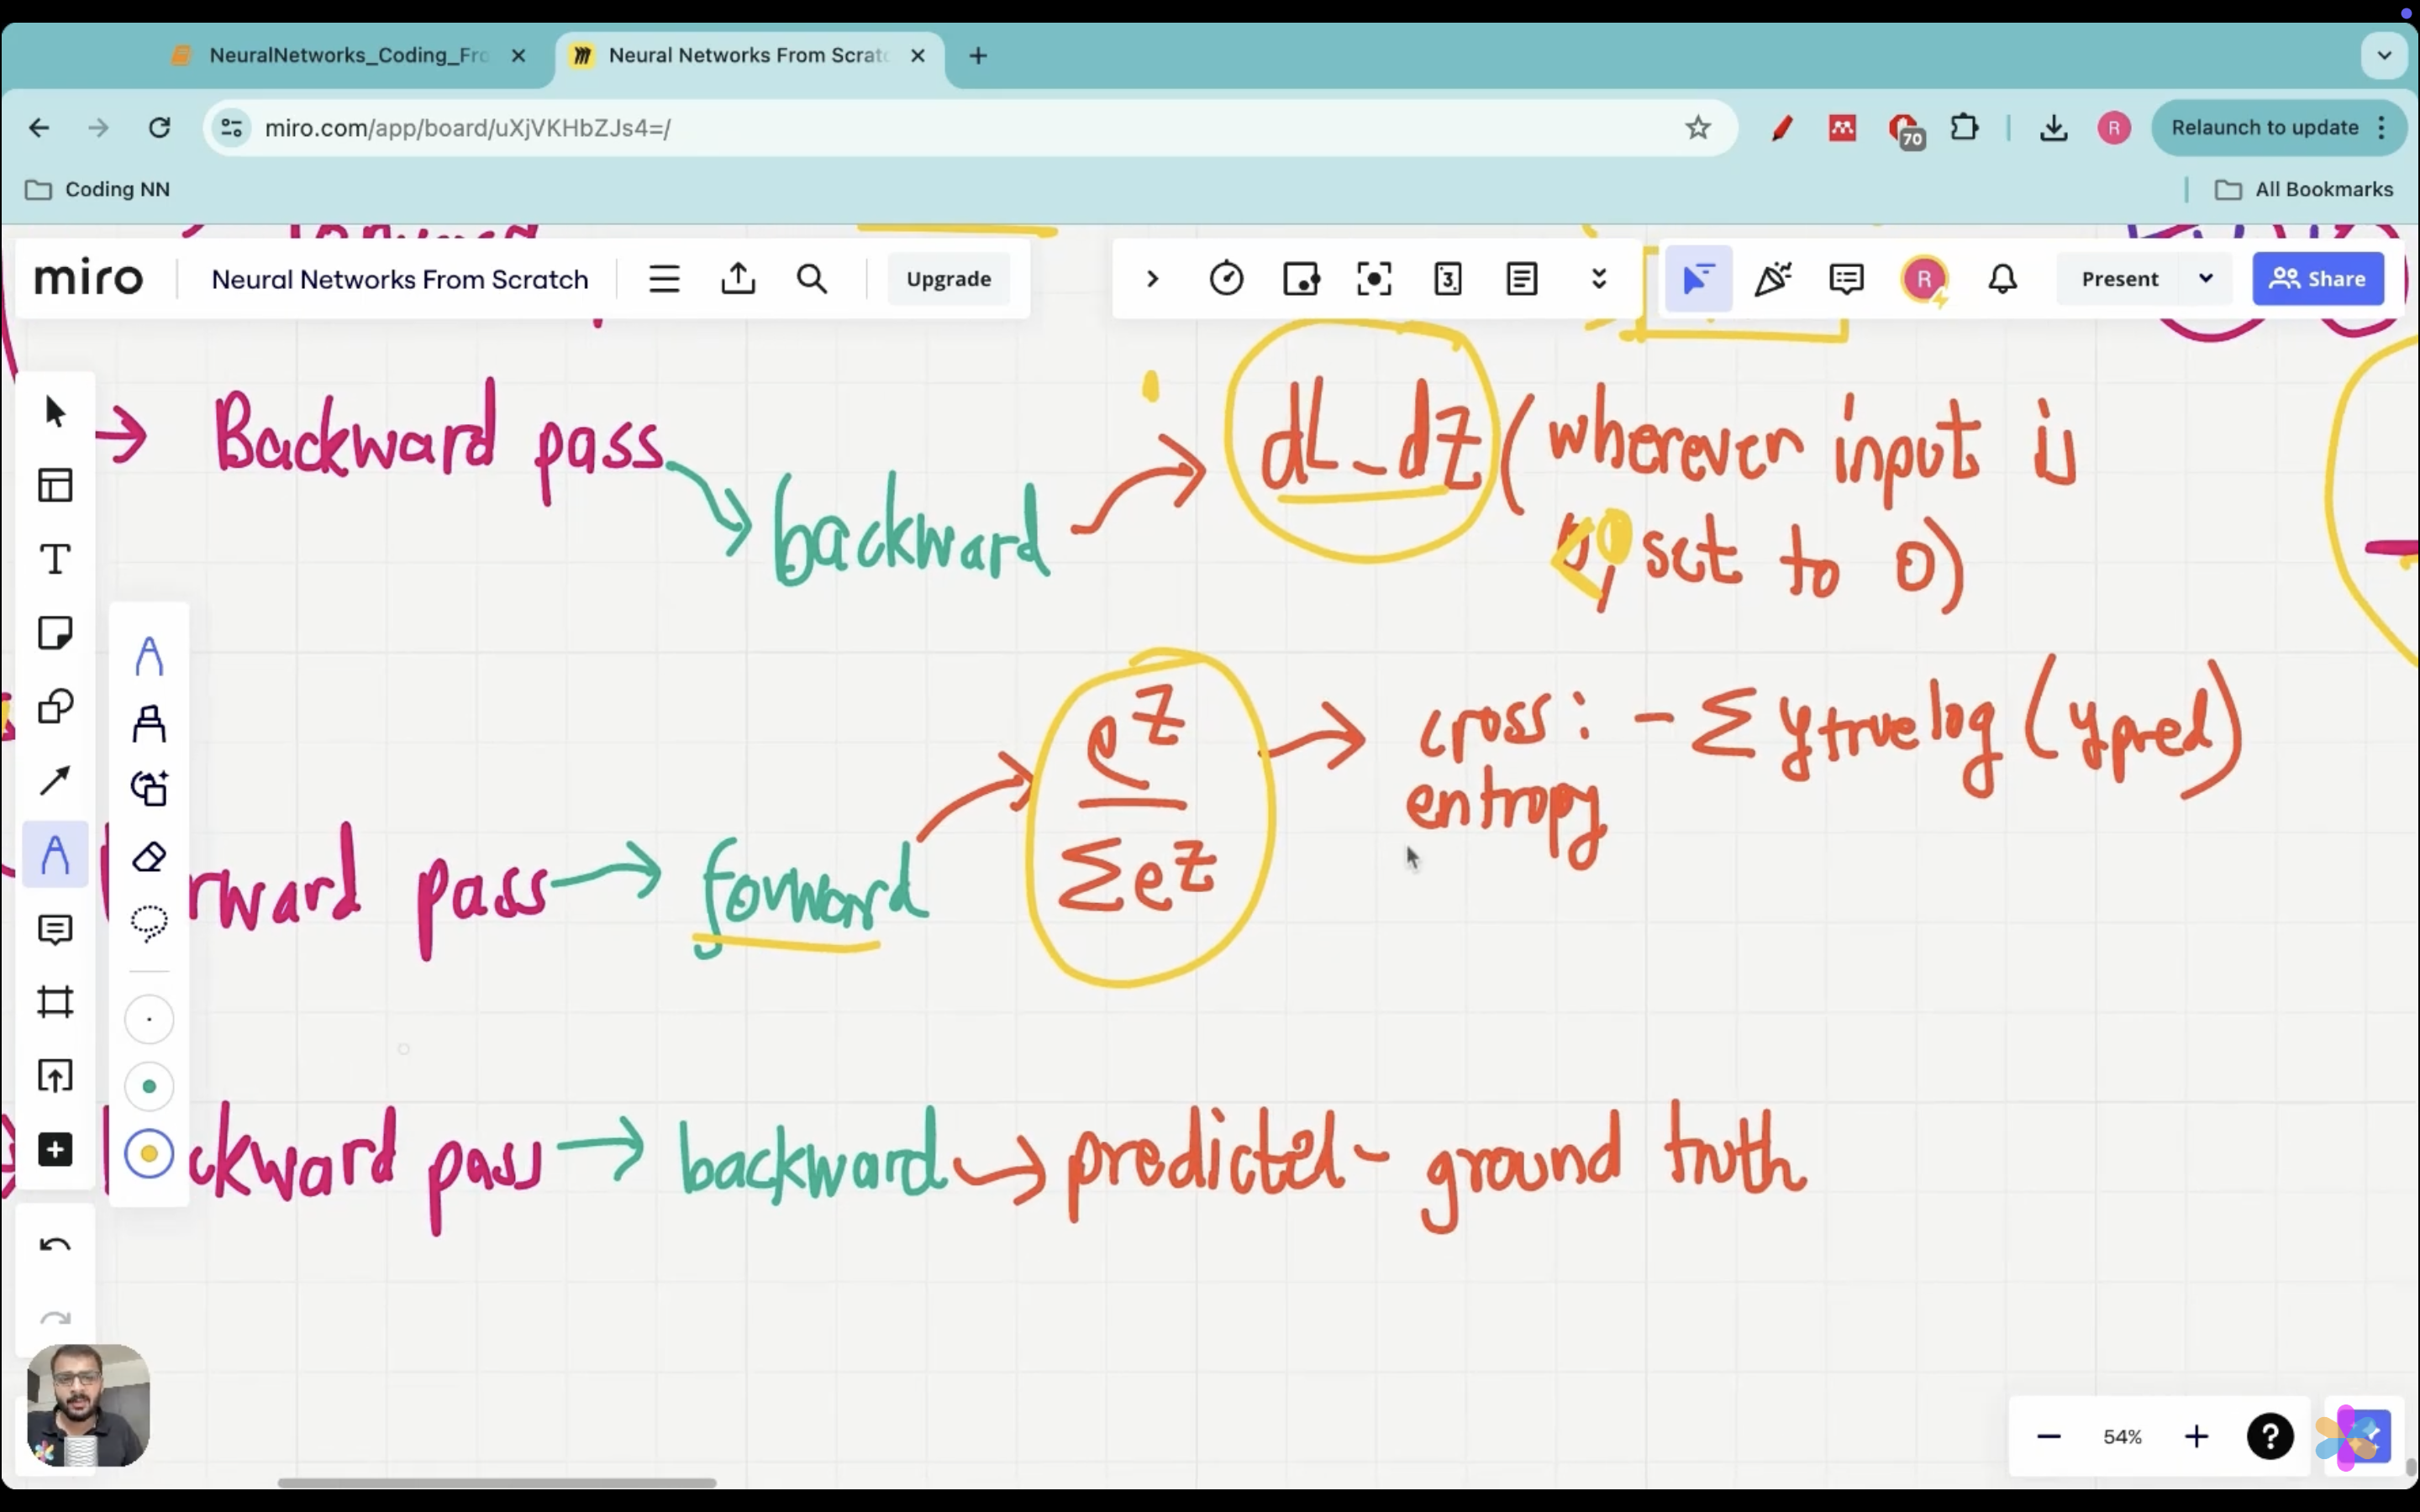 NeuralNetworks_Coding_Fro
Neural Networks From Scratc
miro.com/app/board/uXjVKHbZJs4=/
70
R
Relaunch to update
Coding NN
All Bookmarks
miro
Neural Networks From Scratch
Upgrade
3
R
Present
Share
Backward pass
backward
dL_dz (wherever input is
<0, set to 0)
e^z
Σe^z
cross: - Σ ytrue log (ypred)
entropy
rward pass
forward
ckward pass
backward
predicted - ground truth
54%